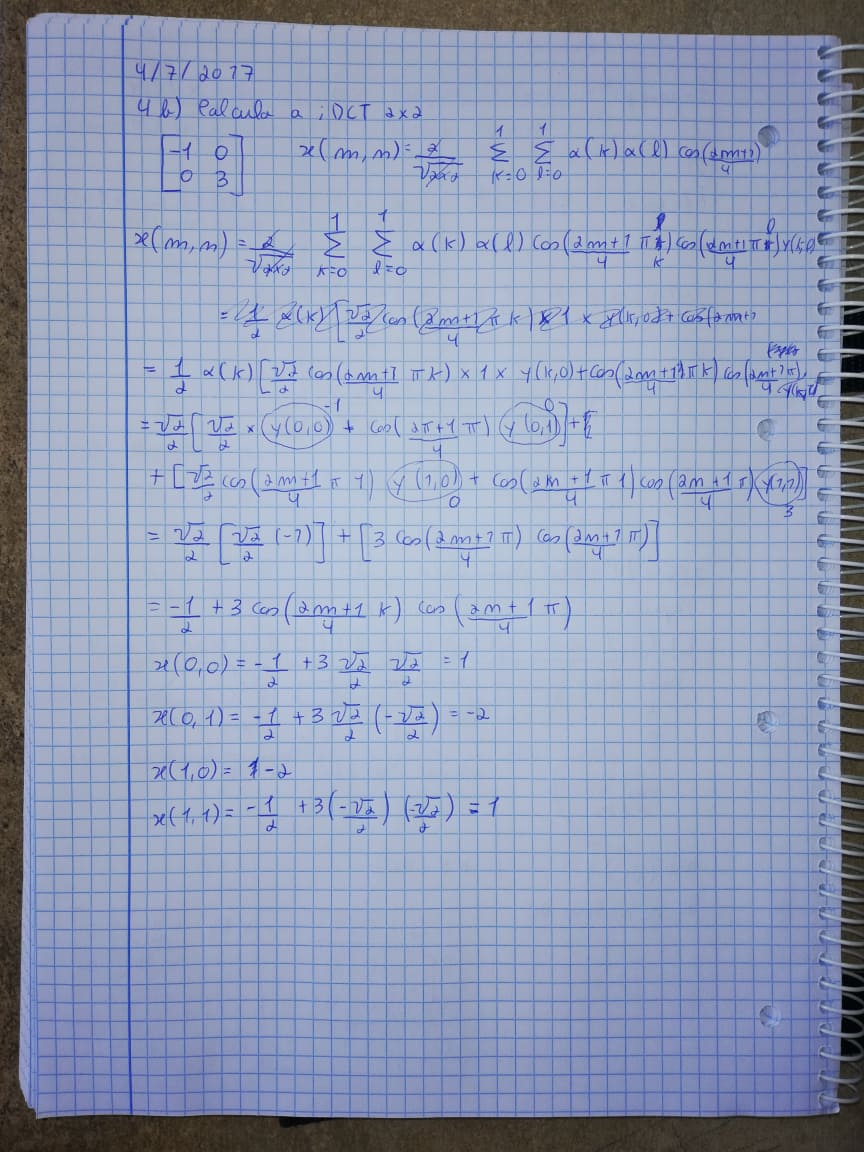 4/7/2017
4 b) Calcula a iDCT 2x2
[-1 0; 0 3] x(m,n) = 2/√2x2 Σ(k=0..1) Σ(l=0..1) α(k) α(l) cos(2m+1/4)
x(m,n) = 2/√2x2 Σ(k=0..1) Σ(l=0..1) α(k) α(l) cos(2m+1/4 π k) cos(2m+1/4 π l) y(k,l)
= 1/2 α(k) [√2/2 cos(2m+1/4 π k) x 1 x y(k,0) + cos(2m+1
= 1/2 α(k) [√2/2 cos(2m+1/4 π k) x 1 x y(k,0) + cos(2m+1/4 π k) cos(2m+1/4 π)
= √2/2 [√2/2 x y(0,0) -1 + cos(2π+1/4 π) y(0,1) 0] + [
+ [√2/2 cos(2m+1/4 π 1) y(1,0) 0 + cos(2m+1/4 π 1) cos(2m+1/4 π) y(1,1) 3]
= √2/2 [√2/2 (-1)] + [3 cos(2m+1/4 π) cos(2m+1/4 π)]
= -1/2 + 3 cos(2m+1/4 π) cos(2m+1/4 π)
x(0,0) = -1/2 + 3 √2/2 √2/2 = 1
x(0,1) = -1/2 + 3 √2/2 (-√2/2) = -2
x(1,0) = -2
x(1,1) = -1/2 + 3(-√2/2) (-√2/2) = 1